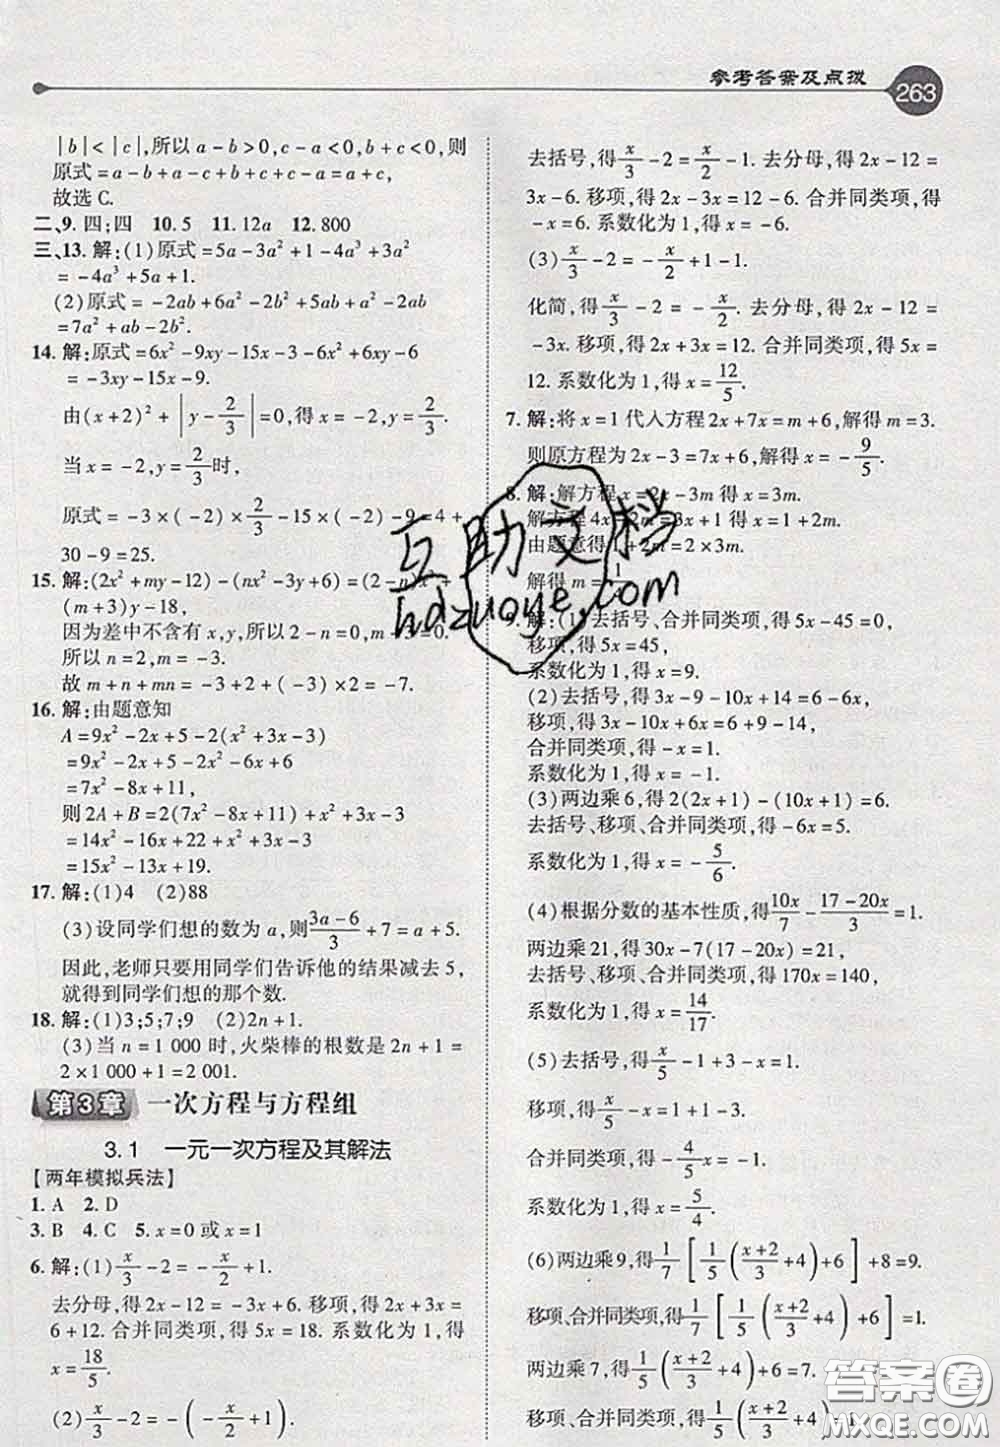 参考答案及点拨
263
|b|<|c|,所以a-b>0,c-a<0,b+c<0,则
原式=a-b+a-c+b+c-a=a+c,
故选C.
二、9.四;四 10.5 11.12a 12.800
三、13.解:(1)原式=5a-3a²+1-4a³+3a²
=-4a³+5a+1.
(2)原式=-2ab+6a²-2b²+5ab+a²-2ab
=7a²+ab-2b².
14.解:原式=6x²-9xy-15x-3-6x²+6xy-6
=-3xy-15x-9.
由(x+2)²+|y-2/3|=0,得x=-2,y=2/3.
当x=-2,y=2/3时,
原式=-3×(-2)×2/3-15×(-2)-9=4+
30-9=25.
15.解:(2x²+my-12)-(nx²-3y+6)=(2-n)x²+
(m+3)y-18,
因为差中不含有x,y,所以2-n=0,m+3=0,
所以n=2,m=-3.
故m+n+mn=-3+2+(-3)×2=-7.
16.解:由题意知
A=9x²-2x+5-2(x²+3x-3)
=9x²-2x+5-2x²-6x+6
=7x²-8x+11,
则2A+B=2(7x²-8x+11)+x²+3x-3
=14x²-16x+22+x²+3x-3
=15x²-13x+19.
17.解:(1)4 (2)88
(3)设同学们想的数为a,则(3a-6)/3+7=a+5.
因此,老师只要用同学们告诉他的结果减去5,
就得到同学们想的那个数.
18.解:(1)3;5;7;9 (2)2n+1.
(3)当n=1 000时,火柴棒的根数是2n+1=
2×1 000+1=2 001.
第3章 一次方程与方程组
3.1 一元一次方程及其解法
【两年模拟兵法】
1.A 2.D
3.B 4.C 5.x=0或x=1
6.解:(1)x/3-2=-x/2+1.
去分母,得2x-12=-3x+6.移项,得2x+3x=
6+12.合并同类项,得5x=18.系数化为1,得
x=18/5.
(2)x/3-2=-(-x/2+1).
去括号,得x/3-2=x/2-1.去分母,得2x-12=
3x-6.移项,得2x-3x=12-6.合并同类项,得
-x=6.系数化为1,得x=-6.
(3)x/3-2=-x/2+1-1.
化简,得x/3-2=-x/2.去分母,得2x-12=
-3x.移项,得2x+3x=12.合并同类项,得5x=
12.系数化为1,得x=12/5.
7.解:将x=1代入方程2x+7x=m+6,解得m=3.
则原方程为2x-3=7x+6,解得x=-9/5.
8.解:解方程x=2x-3m得x=3m.
解方程4x-2m=3x+1得x=1+2m.
由题意得1+2m=2×3m.
解得m=1/
9.解:(1)去括号、合并同类项,得5x-45=0,
移项,得5x=45,
系数化为1,得x=9.
(2)去括号,得3x-9-10x+14=6-6x,
移项,得3x-10x+6x=6+9-14,
合并同类项,得-x=1.
系数化为1,得x=-1.
(3)两边乘6,得2(2x+1)-(10x+1)=6.
去括号、移项、合并同类项,得-6x=5.
系数化为1,得x=-5/6.
(4)根据分数的基本性质,得10x/7-(17-20x)/3=1.
两边乘21,得30x-7(17-20x)=21,
去括号、移项、合并同类项,得170x=140,
系数化为1,得x=14/17.
(5)去括号,得x/5-1+3-x=1,
移项,得x/5-x=1+1-3.
合并同类项,得-4/5x=-1.
系数化为1,得x=5/4.
(6)两边乘9,得1/7[1/5((x+2)/3+4)+6]+8=9.
移项、合并同类项,得1/7[1/5((x+2)/3+4)+6]=1.
两边乘7,得1/5((x+2)/3+4)+6=7.
移项、合并同类项,得1/5((x+2)/3+4)=1
互助文档
hdzuoye.com
答案圈
MXQE.COM